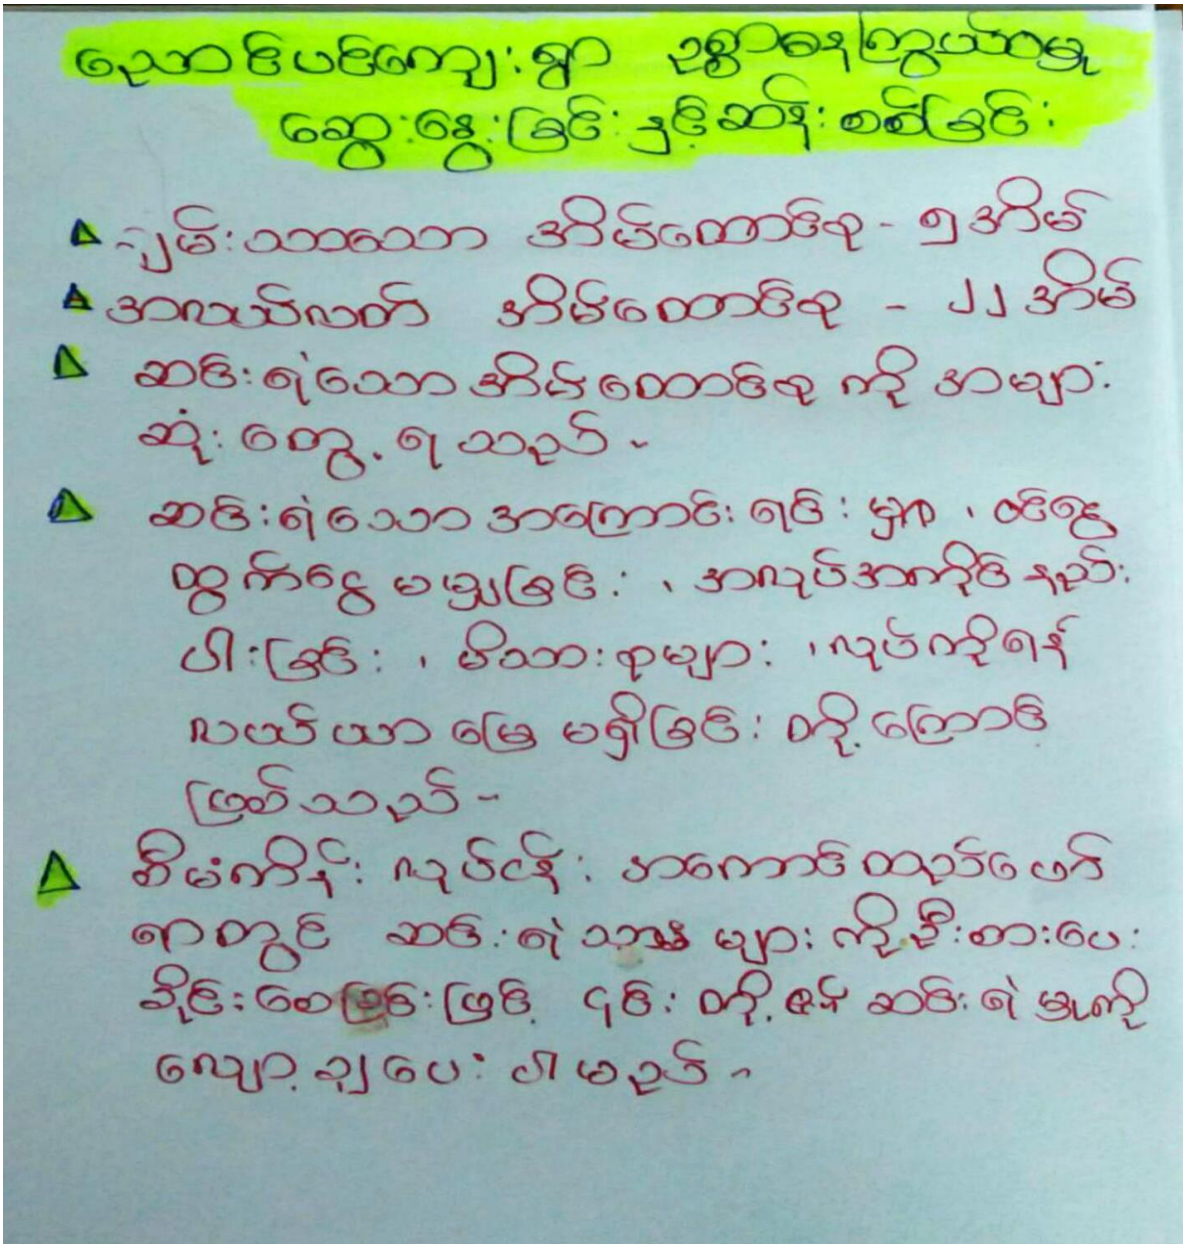 ညောင်ပင်ကျေးရွာ ဥစ္စာဓနကြွယ်ဝမှု
ဆွေးနွေးခြင်းနှင့်ဆန်းစစ်ခြင်း
ချမ်းသာသော အိမ်ထောင်စု - ၅ အိမ်
အလယ်လတ် အိမ်ထောင်စု - ၂၂ အိမ်
ဆင်းရဲသောအိမ်ထောင်စု ကို အများ
ဆုံး တွေ့ရသည်။
ဆင်းရဲသောအကြောင်းရင်းမှာ ၊ ဝင်ငွေ
ထွက်ငွေ မမျှခြင်း ၊ အလုပ်အကိုင်နည်း
ပါးခြင်း ၊ မိသားစုများ ၊ လုပ်ကိုင်ရန်
လယ်ယာမြေ မရှိခြင်း တို့ကြောင့်
ဖြစ်သည်။
စီမံကိန်း လုပ်ငန်း အကောင်ထည်ဖော်
ရာတွင် ဆင်းရဲသားများ ကို ဦးစားပေး
ခိုင်းစေခြင်းဖြင့် ၎င်းတို့၏ ဆင်းရဲမှုကို
လျော့ချပေးပါမည်။